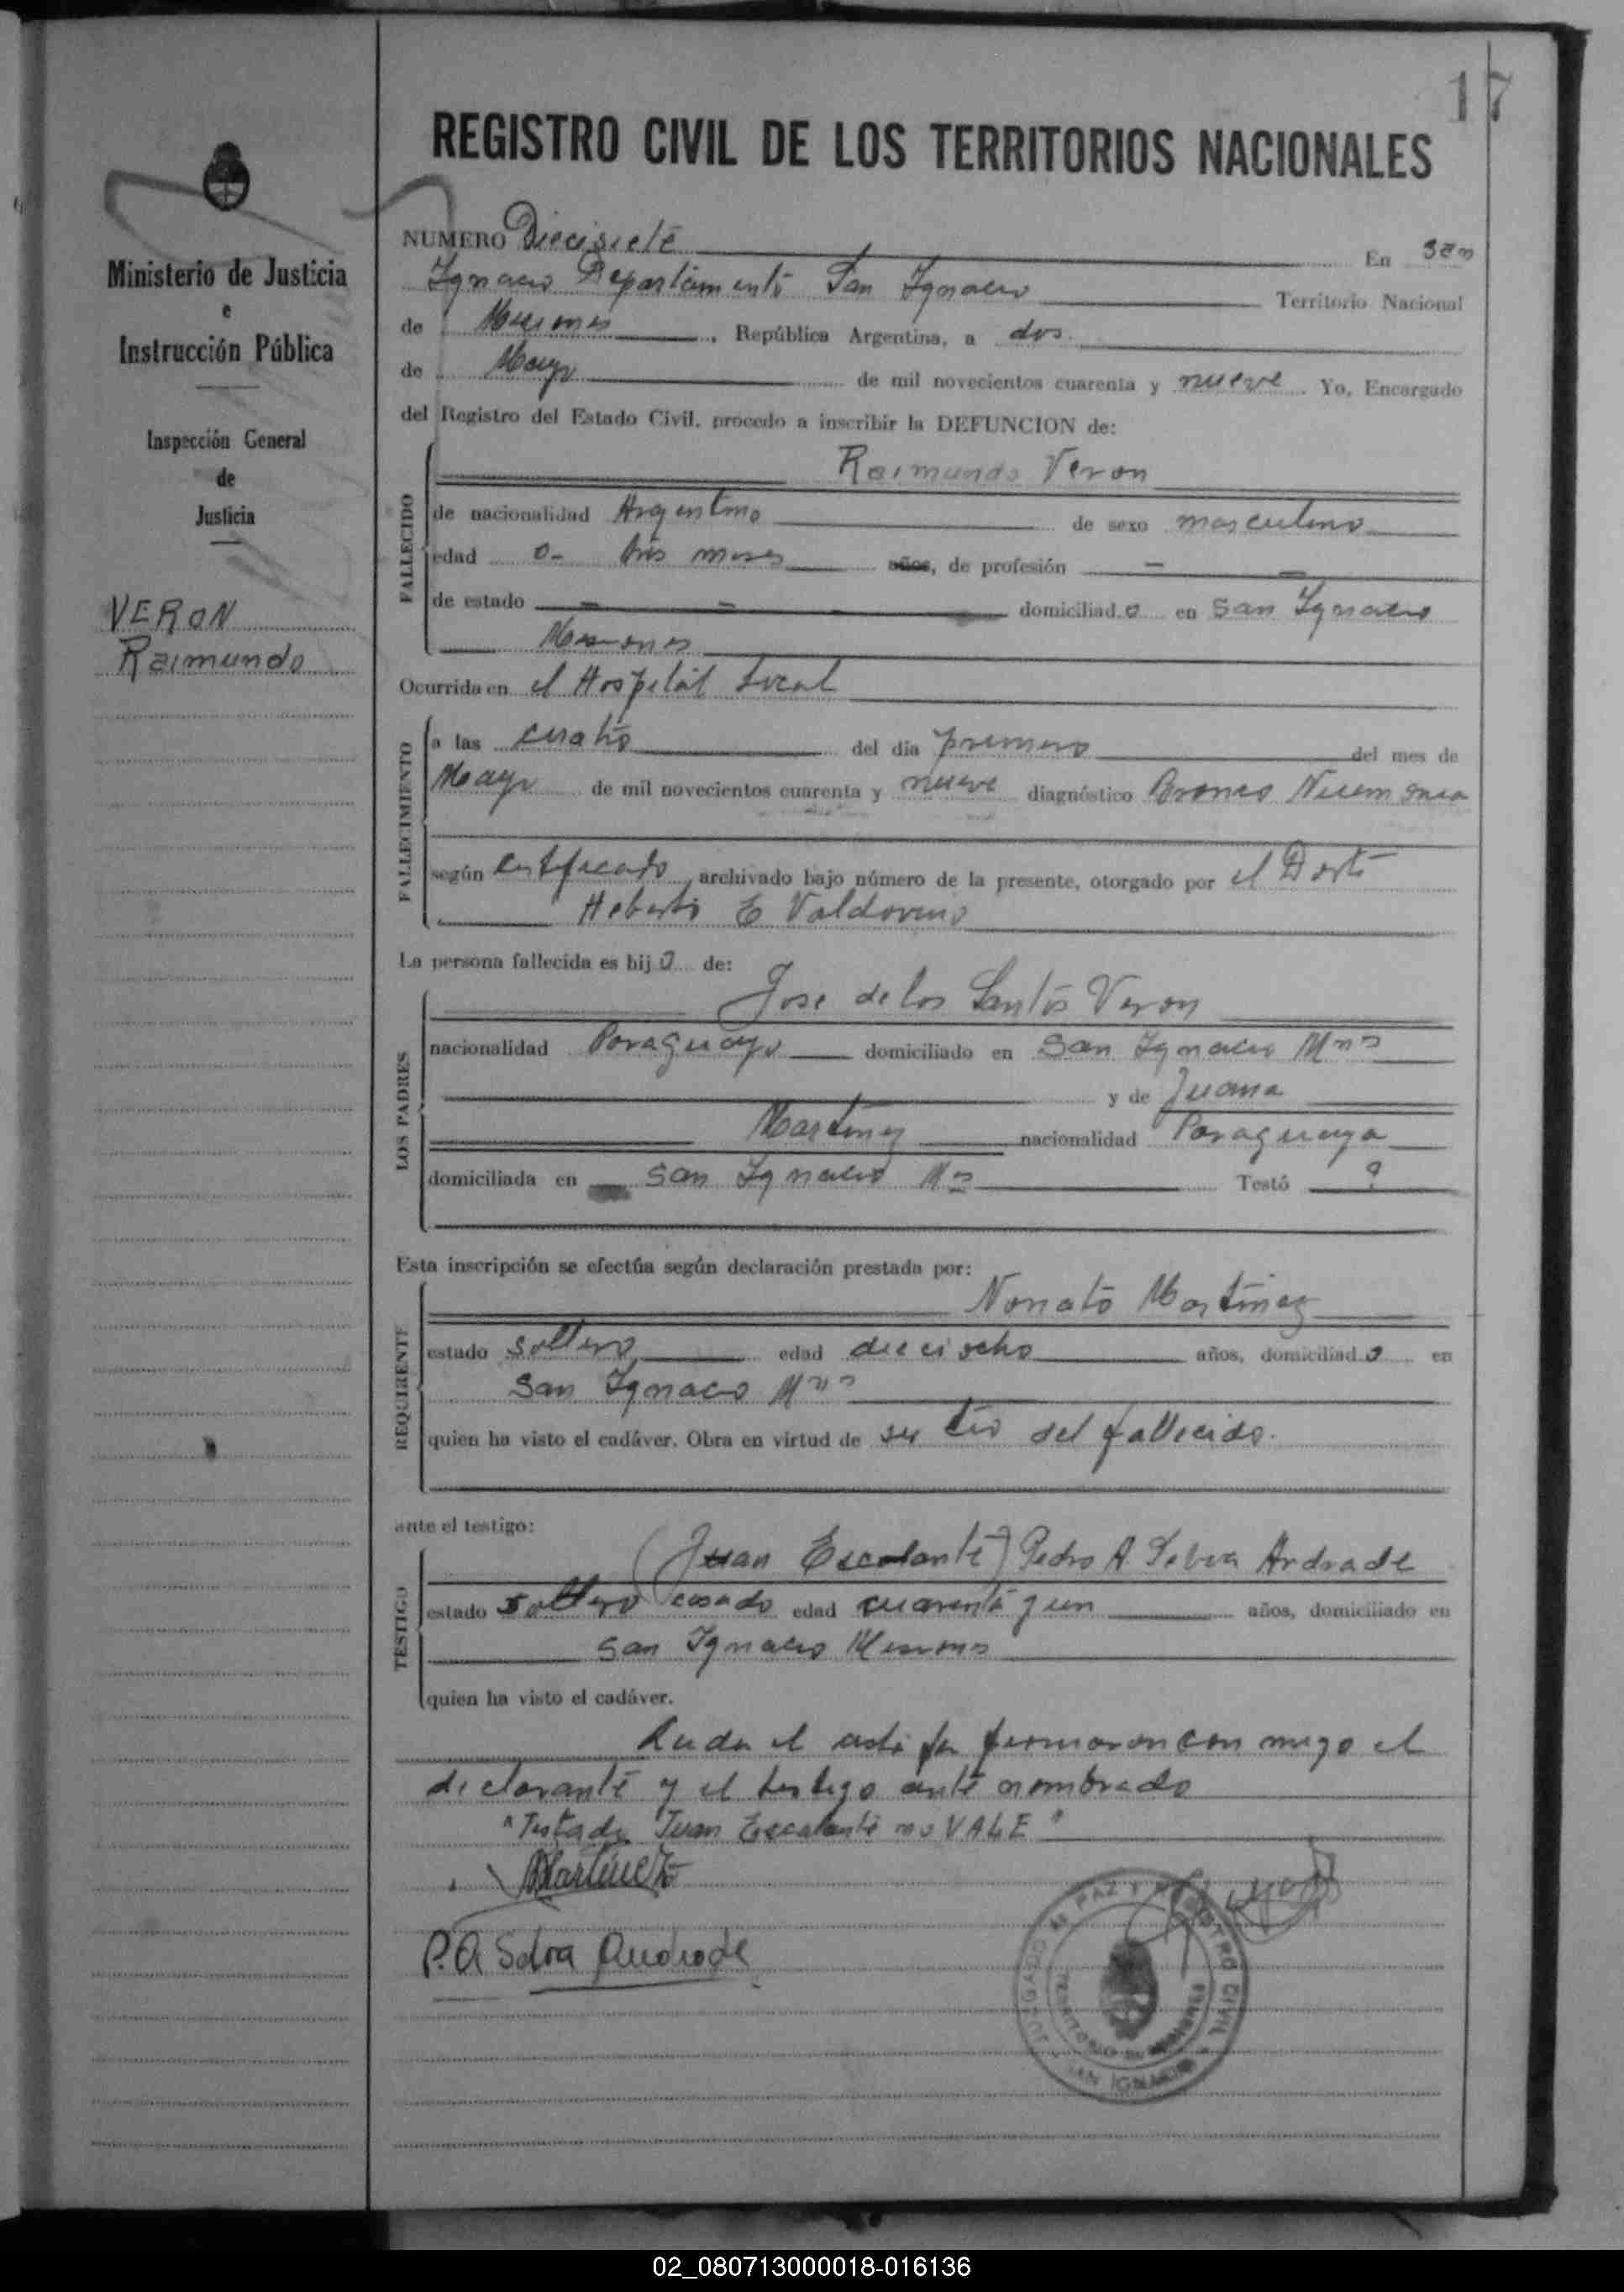 17
REGISTRO CIVIL DE LOS TERRITORIOS NACIONALES
Ministerio de Justicia
e
Instrucción Pública
Inspección General
de
Justicia
VERON
Raimundo
NUMERO Diecisiete En San
Ignacio Departamento San Ignacio Territorio Nacional
de Misiones, República Argentina, a dos
de Mayo de mil novecientos cuarenta y nueve Yo, Encargado
del Registro del Estado Civil, procedo a inscribir la DEFUNCION de:
Raimundo Veron
FALLECIDO
de nacionalidad Argentino de sexo masculino
edad o- tres meses años, de profesión - -
de estado - - domiciliad o en San Ignacio
Misiones
Ocurrida en el Hospital Local
FALLECIMIENTO
a las cuatro del día primero del mes de
Mayo de mil novecientos cuarenta y nueve diagnóstico Bronco Neumonia
según certificado archivado bajo número de la presente, otorgado por el
Heberto E Valdovino
La persona fallecida es hij o de:
LOS PADRES
Jose de los Santos Veron
nacionalidad Paraguayo domiciliado en San Ignacio Mnes
y de Juana
Martinez nacionalidad Paraguaya
domiciliada en San Ignacio Mns Testó ?
Esta inscripción se efectúa según declaración prestada por:
REQUIRENTE
Nonato Martinez
estado soltero edad dieciocho años, domiciliad o en
San Ignacio Mnes
quien ha visto el cadáver. Obra en virtud de ser tio del fallecido.
ante el testigo:
TESTIGO
(Juan Escalante) Pedro A. Selva Andrade
estado soltero casado edad cuarenta y un años, domiciliado en
San Ignacio Misiones
quien ha visto el cadáver.
Leida el acta la firmaron con migo el
declarante y el testigo ante nombrado
"Testado Juan Escalante no VALE"
Martinez
P. A Selva Andrade
JUZGADO DE PAZ Y REGISTRO CIVIL
TERRITORIO DE MISIONES
SAN IGNACIO
02_080713000018-016136